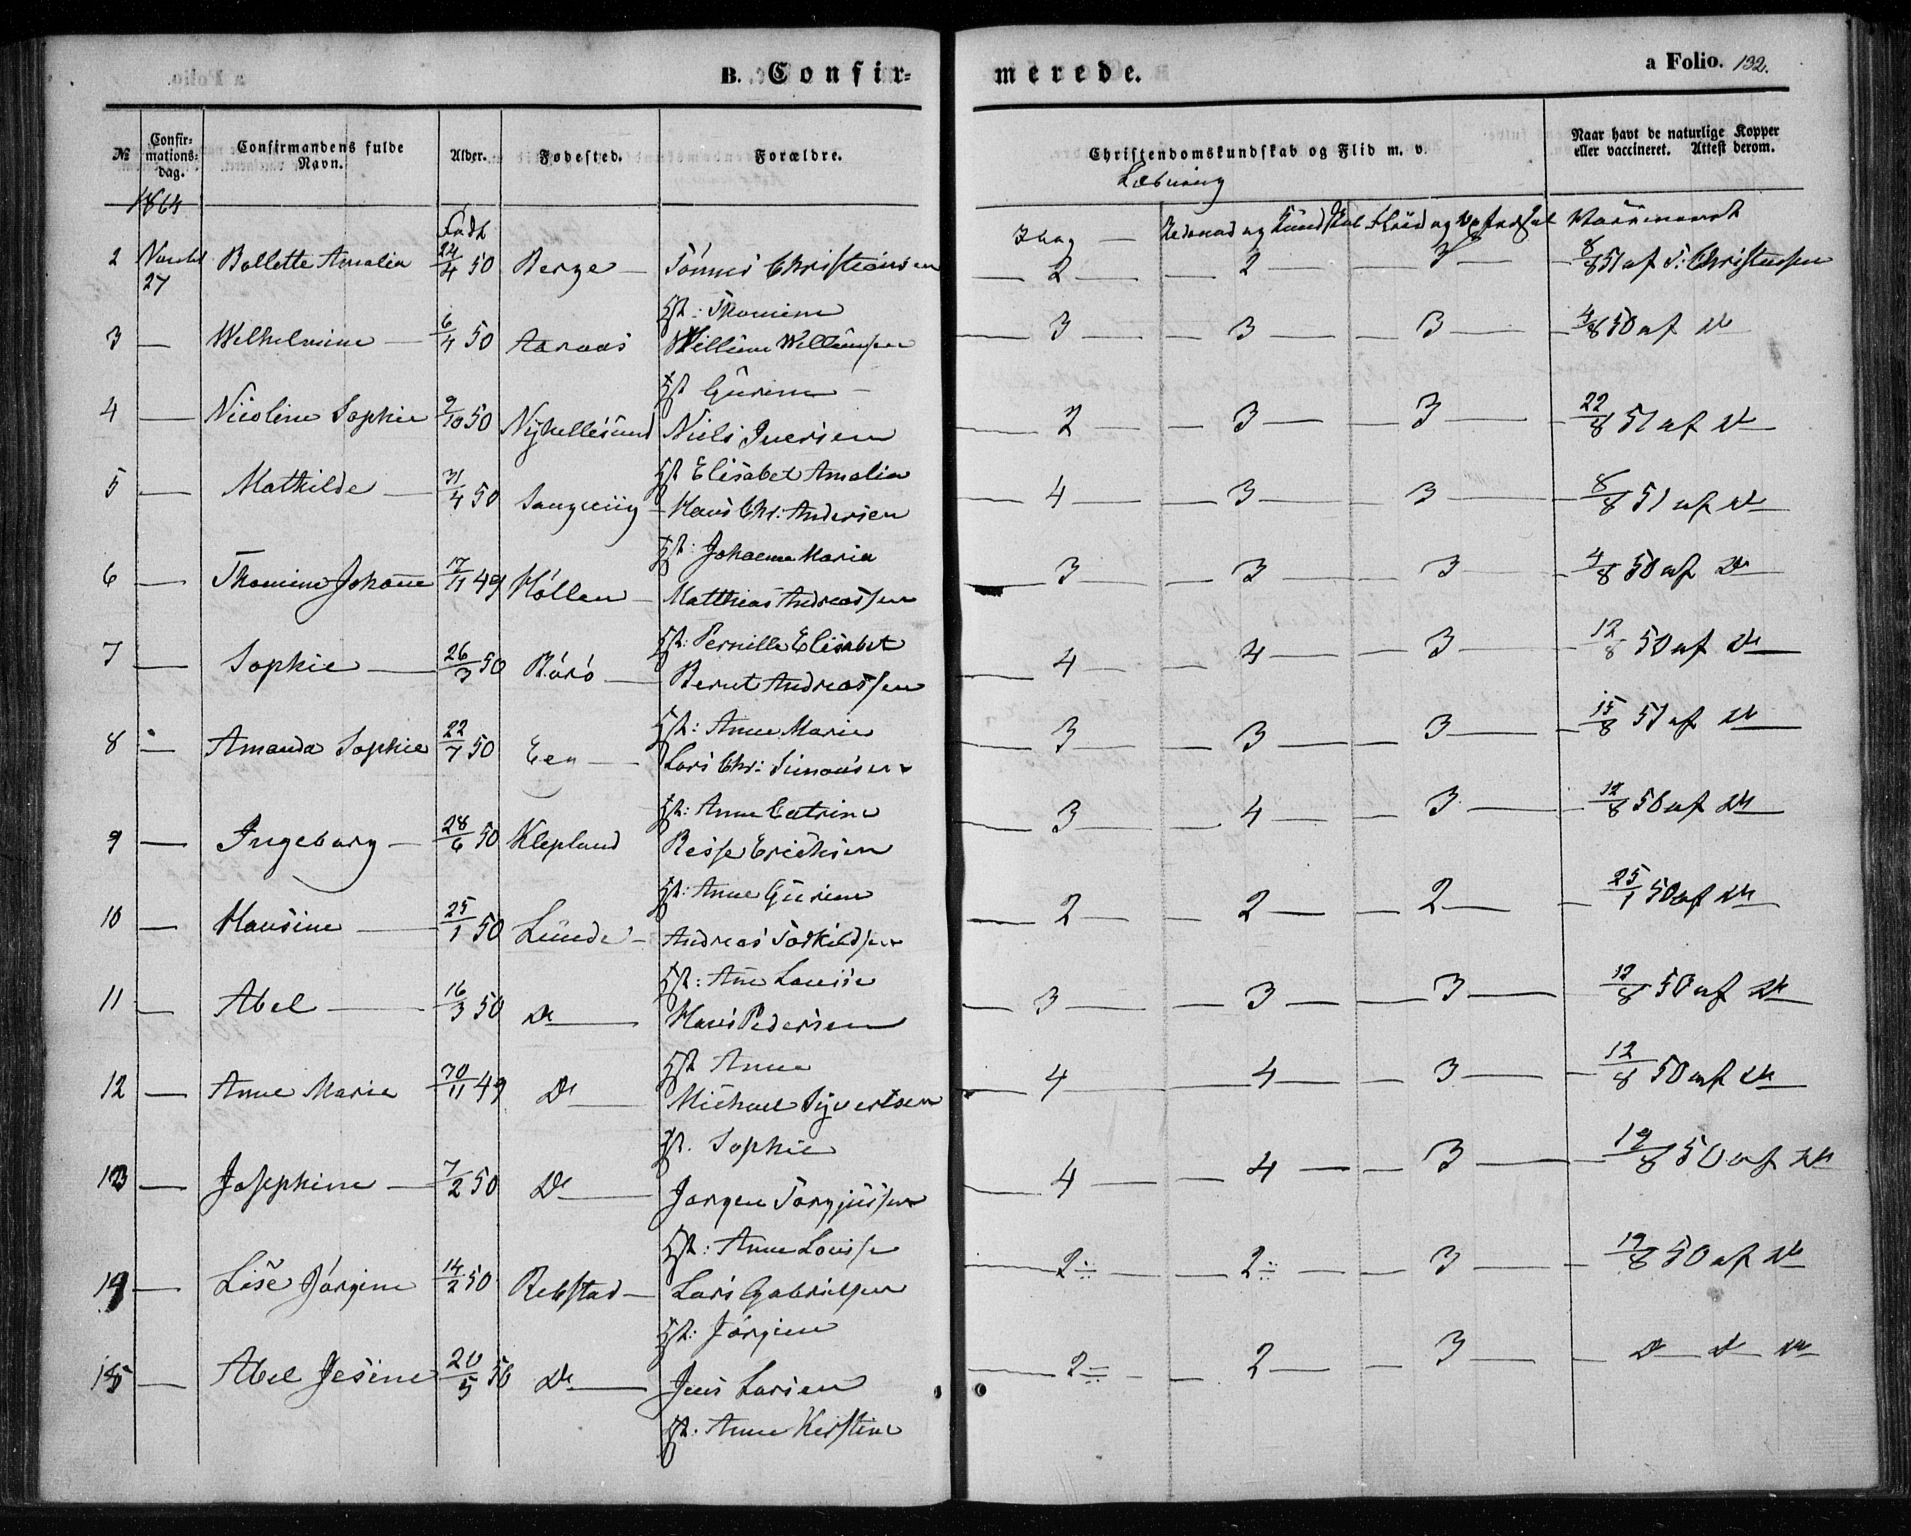 B. Confir-
merede.
a Folio. 132.
№
Confir-
mations-
dag.
Confirmandens fulde
Navn.
Alder.
Fødested.
Forældre.
Christendomskundskab og Flid m. v.
Naar havt de naturlige Kopper
eller vaccineret. Attest derom.
1864
Født
Læsning
I bog
2 Novbr Bollette Amalia 24/4 50 Berge Tönnes Christiansen 2 2 3 8/8 51 af S: Christensen
27
Hst: Thomine
3 Wilhelmine 6/4 50 Aaroos Willum Willumsen 3 3 3 4/8 50 af Do
Hst Gurine
4 Nicoline Sophie 9/10 50 Nyhellesund Niels Iversen 2 3 3 22/8 51 af Do
Hst Elisabet Amalia
5 Mathilde 31/4 50 Sangviig Hans Chr: Andersen 4 3 3 8/8 51 af Do
Hst: Johanne Maria
6 Thomine Johanne 17/11 49 Höllen Matthias Andreassen 3 3 3 4/8 50 af Do
Hst: Pernille Elisabet
7 Sophie 26/3 50 Börö Bernt Andreassen 4 4 3 12/8 50 af Do
Hst: Anne Marie
8 Amanda Sophie 22/7 50 Eeg Lars Chr: Simonsen 3 3 3 15/8 51 af Do
Hst: Anne Catrine
9 Ingeborg 28/6 50 Klepland Reisse Erichsen 3 4 3 12/8 50 af Do
Hst: Anne Gurine
10 Hansine 25/1 50 Lunde Andreas Todkildsen 2 2 2 25/1 50 af Do
Hst: Ane Louise
11 Abel 16/3 50 Do Hans Pedersen 3 3 3 12/8 50 af Do
Hst Anne
12 Anne Marie 30/11 49 Do Michael Syvertsen 4 4 3 12/8 50 af Do
Hst. Sophie
13 Josephine 7/2 50 Do Jörgen Torgjussen 4 4 3 12/8 50 af Do
Hst: Anne Louise
14 Lise Jörgine 14/2 50 Rebstad Lars Gabrielsen 2 2 3 12/8 50 af Do
Hst: Jörgine
15 Abel Jesine 20/5 50 Do Jens Larsen 2 2 3 Do Do Do
Hst: Anne Kirstine